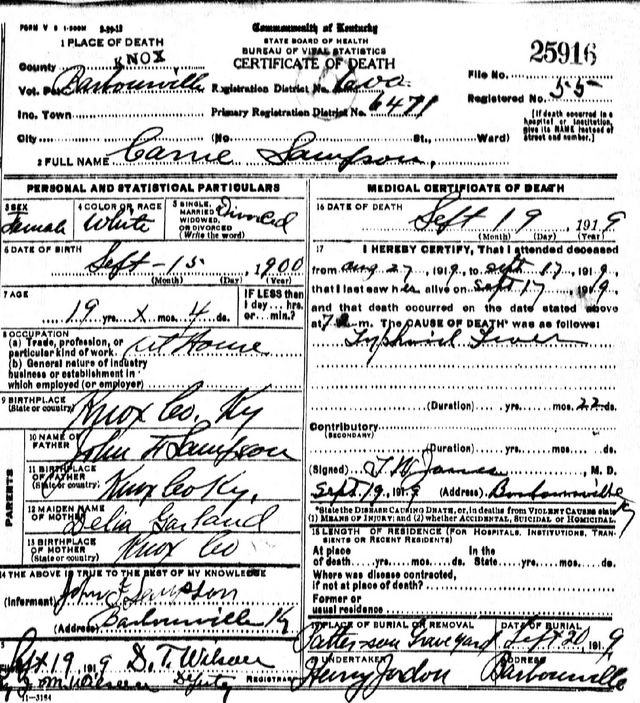 FORM V S 1-500M 3-29-13
Commonwealth of Kentucky
STATE BOARD OF HEALTH
BUREAU OF VITAL STATISTICS
CERTIFICATE OF DEATH
1 PLACE OF DEATH
County KNOX
Vot. Pct Barbourville
Inc. Town
City (No. St., Ward)
Registration District No.
Primary Registration District No. 6471
25916
File No.
Registered No. 55
[If death occurred in a hospital or institution, give its NAME instead of street and number.]
2 FULL NAME Carrie Sampson,
PERSONAL AND STATISTICAL PARTICULARS
3 SEX Female
4 COLOR OR RACE White
5 SINGLE, MARRIED, WIDOWED, OR DIVORCED (Write the word) Divorced
6 DATE OF BIRTH Sept - 15, 1900
(Month) (Day) (Year)
7 AGE 19 yrs. x mos. 4 ds.
IF LESS than 1 day... hrs. or... min.?
8 OCCUPATION
(a) Trade, profession, or particular kind of work. at Home
(b) General nature of industry business or establishment in which employed (or employer)
9 BIRTHPLACE (State or country) Knox Co. Ky
PARENTS
10 NAME OF FATHER John F Sampson
11 BIRTHPLACE OF FATHER (State or country) Knox Co Ky,
12 MAIDEN NAME OF MOTHER Delia Garland
13 BIRTHPLACE OF MOTHER (State or country) Knox Co
14 THE ABOVE IS TRUE TO THE BEST OF MY KNOWLEDGE
(Informant) John F Sampson
(Address) Barbourville Ky
Filed Sept 19, 1919 D. T. Wilson REGISTRAR
By J M Wilson Deputy
11-3184
MEDICAL CERTIFICATE OF DEATH
16 DATE OF DEATH Sept 19, 1919
(Month) (Day) (Year)
17 I HEREBY CERTIFY, That I attended deceased
from Aug 27, 1919, to Sept 17, 1919,
that I last saw her alive on Sept 17, 1919,
and that death occurred on the date stated above
at 7 m. The CAUSE OF DEATH* was as follows:
Typhoid Fever
(Duration) yrs. mos. 22 ds.
Contributory
(SECONDARY)
(Duration) yrs. mos. ds.
(Signed) M. D.
Sept. 19, 1919 (Address) Barbourville Ky
*State the DISEASE CAUSING DEATH, or, in deaths from VIOLENT CAUSES state
(1) MEANS OF INJURY; and (2) whether ACCIDENTAL, SUICIDAL or HOMICIDAL.
18 LENGTH OF RESIDENCE (FOR HOSPITALS, INSTITUTIONS, TRANSIENTS OR RECENT RESIDENTS)
At place of death yrs. mos. ds. In the State yrs. mos. ds.
Where was disease contracted, if not at place of death?
Former or usual residence
19 PLACE OF BURIAL OR REMOVAL Patterson Graveyard
DATE OF BURIAL Sept 20, 1919
20 UNDERTAKER Henry Jordon
ADDRESS Barbourville